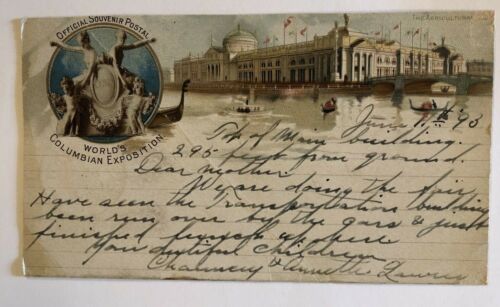 OFFICIAL SOUVENIR POSTAL
WORLD'S
COLUMBIAN EXPOSITION
THE AGRICULTURAL
June 11th 93
Top of Main building.
295 feet from ground.
Dear Mother.
We are doing the fair
Have seen the Transportation building
been run over by the cars & just
finished lunch up here
Your dutiful children
Chauncey & Annette